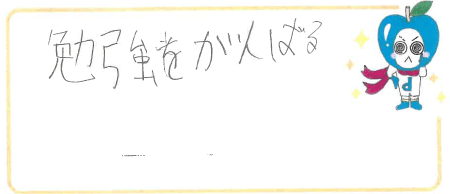 勉強をがんばる